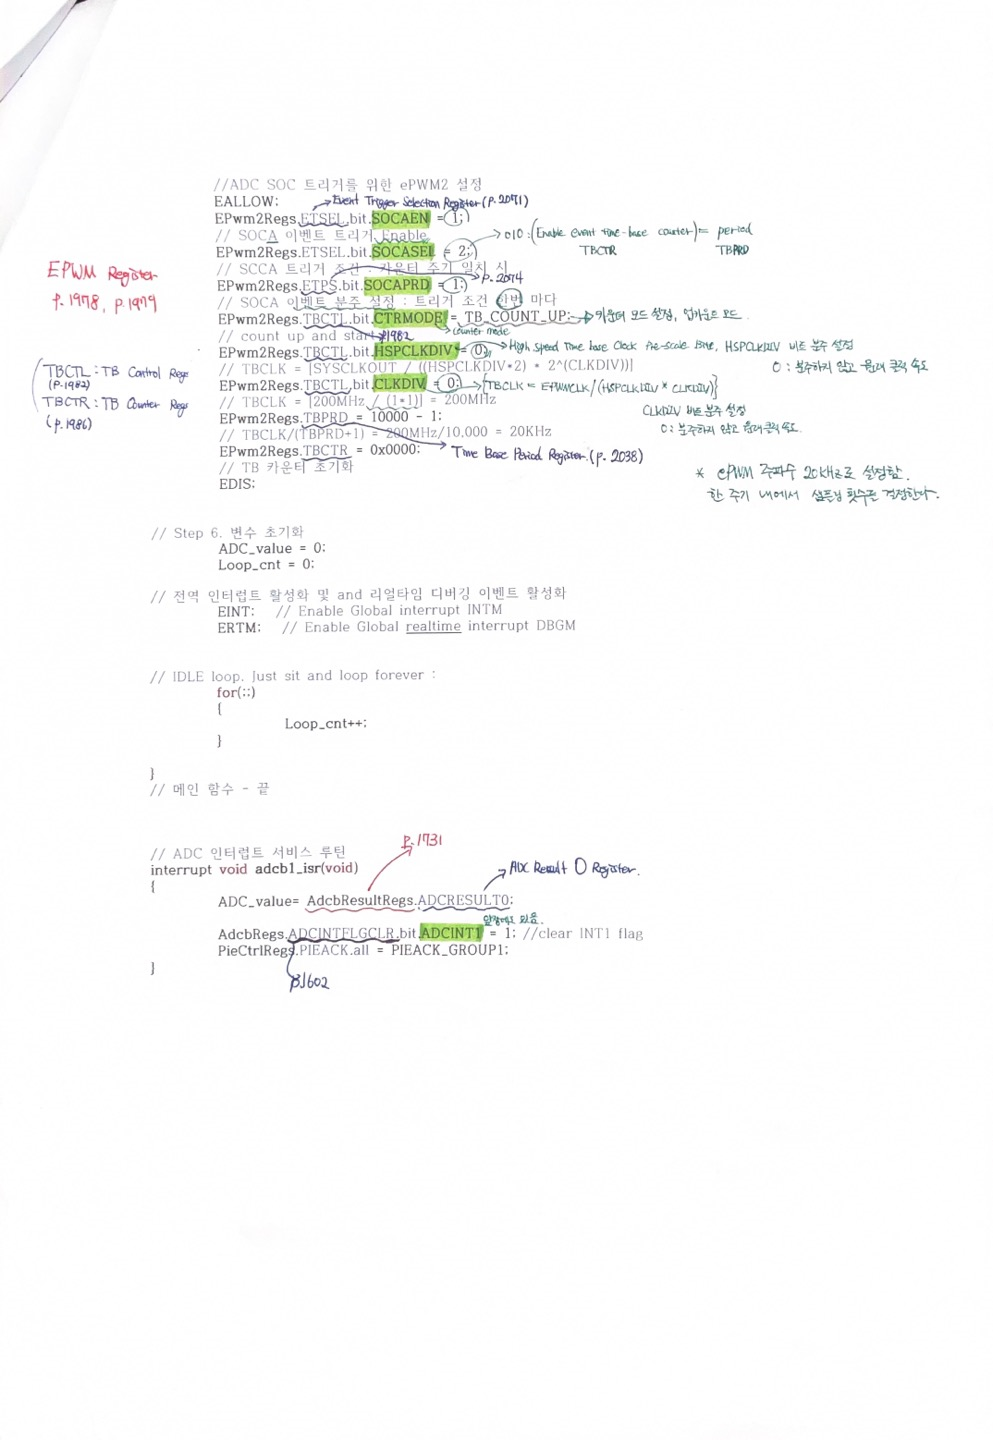 //ADC SOC 트리거를 위한 ePWM2 설정
EALLOW;
Event Trigger Selection Register (p. 2071)
EPwm2Regs.ETSEL.bit.SOCAEN = 1;
// SOCA 이벤트 트리거 Enable
EPwm2Regs.ETSEL.bit.SOCASEL = 2;
010 : (Enable event time-base counter) = period
TBCTR TBPRD
// SCCA 트리거 조건 : 카운터 주기 일치 시
p. 2074
EPwm2Regs.ETPS.bit.SOCAPRD = 1;
// SOCA 이벤트 분주 설정 : 트리거 조건 한번 마다
EPwm2Regs.TBCTL.bit.CTRMODE = TB_COUNT_UP;
카운터 모드 설정, 업카운트 모드.
counter mode
// count up and start
p1982
EPwm2Regs.TBCTL.bit.HSPCLKDIV = 0;
High Speed Time base Clock Pre-scale Bits, HSPCLKDIV 비트 분주 설정
0 : 분주하지 않고 원래 클럭 속도
// TBCLK = [SYSCLKOUT / ((HSPCLKDIV*2) * 2^(CLKDIV))]
EPwm2Regs.TBCTL.bit.CLKDIV = 0;
{TBCLK = EPWMCLK/(HSPCLKDIV * CLKDIV)}
// TBCLK = [200MHz / (1*1)] = 200MHz
CLKDIV 비트 분주 설정
EPwm2Regs.TBPRD = 10000 - 1;
0 : 분주하지 않고 원래 클럭 속도.
// TBCLK/(TBPRD+1) = 200MHz/10,000 = 20KHz
EPwm2Regs.TBCTR = 0x0000;
Time Base Period Register. (p. 2038)
// TB 카운터 초기화
EDIS;
EPWM Register
p. 1978, p. 1979
TBCTL : TB Control Regs
(p.1982)
TBCTR : TB Counter Regs
(p. 1986)
* ePWM 주파수 20kHz로 설정함.
한 주기 내에서 샘플링 횟수를 결정한다.
// Step 6. 변수 초기화
ADC_value = 0;
Loop_cnt = 0;
// 전역 인터럽트 활성화 및 and 리얼타임 디버깅 이벤트 활성화
EINT; // Enable Global interrupt INTM
ERTM; // Enable Global realtime interrupt DBGM
// IDLE loop. Just sit and loop forever :
for(;;)
{
Loop_cnt++;
}
}
// 메인 함수 - 끝
p.1731
// ADC 인터럽트 서비스 루틴
interrupt void adcb1_isr(void)
ADC Result 0 Register.
{
ADC_value= AdcbResultRegs.ADCRESULT0;
앞장에도 있음.
AdcbRegs.ADCINTFLGCLR.bit.ADCINT1 = 1; //clear INT1 flag
PieCtrlRegs.PIEACK.all = PIEACK_GROUP1;
}
p.1602